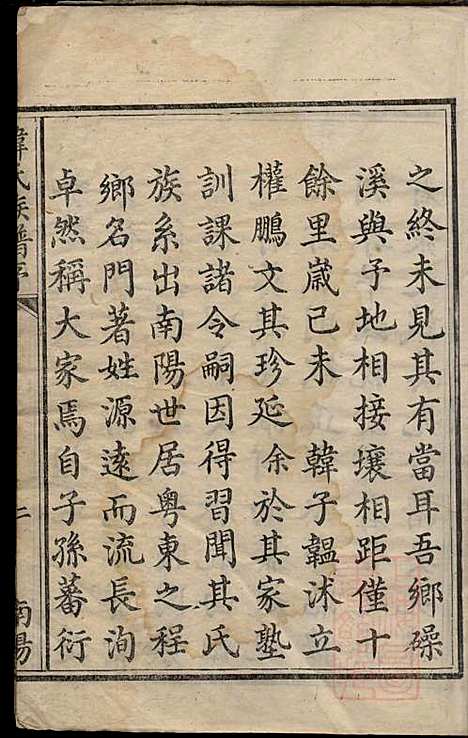 之終未見其有當耳吾鄉礤
溪與予地相接壤相距僅十
餘里歲己未 韓子韞沭立
權鵬文其珍延余於其家塾
訓課諸令嗣因得習聞其氏
族系出南陽世居粵東之程
鄉名門著姓源遠而流長洵
卓然稱大家焉自子孫蕃衍
韓氏族譜序 二 南陽